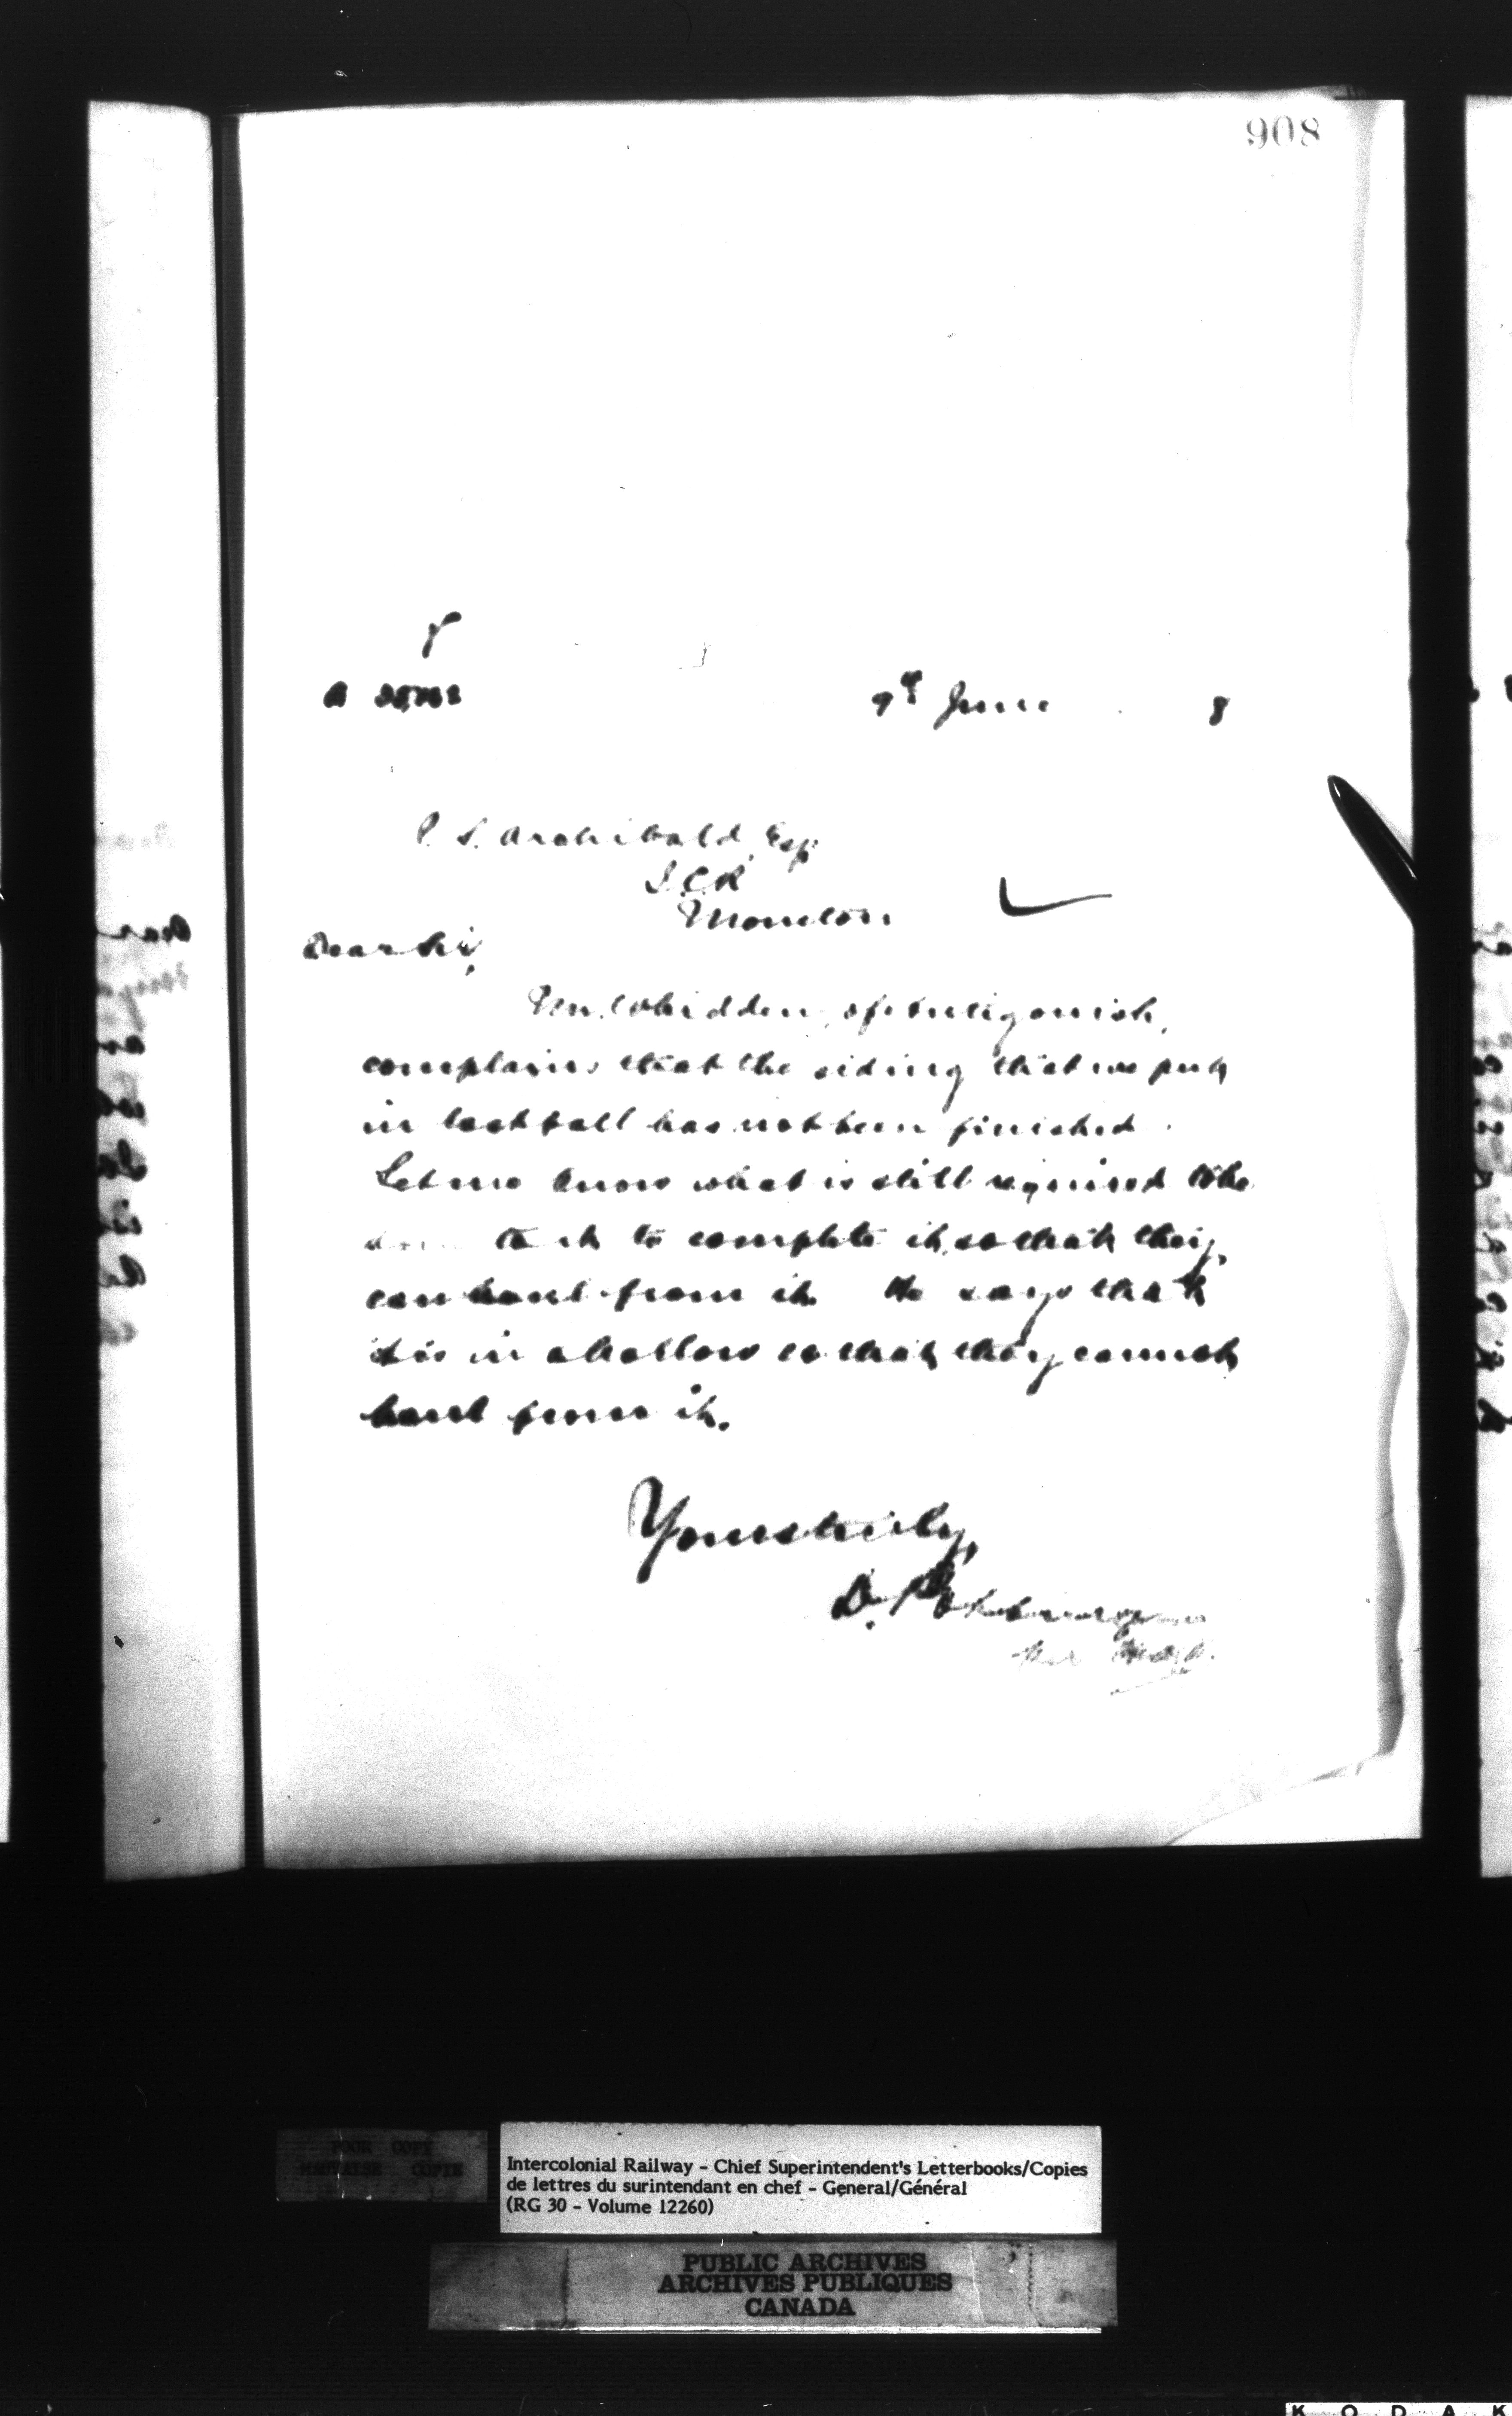 908
9th June 8
P. S. Archibald, Esq
I.C.R
Moncton
Dear Sir,
Mr. Whidden, of Antigonish,
complains that the siding that we put
in last fall has not been finished.
Let me know what is still required to be
done to it to complete it, so that they
can haul from it. He says that
it is in a hollow so that they cannot
haul from it.
Yours truly,
D. Pottinger
POOR COPY
MAUVAISE COPIE
Intercolonial Railway - Chief Superintendent's Letterbooks/Copies
de lettres du surintendant en chef - General/Général
(RG 30 - Volume 12260)
PUBLIC ARCHIVES
ARCHIVES PUBLIQUES
CANADA
KODAK